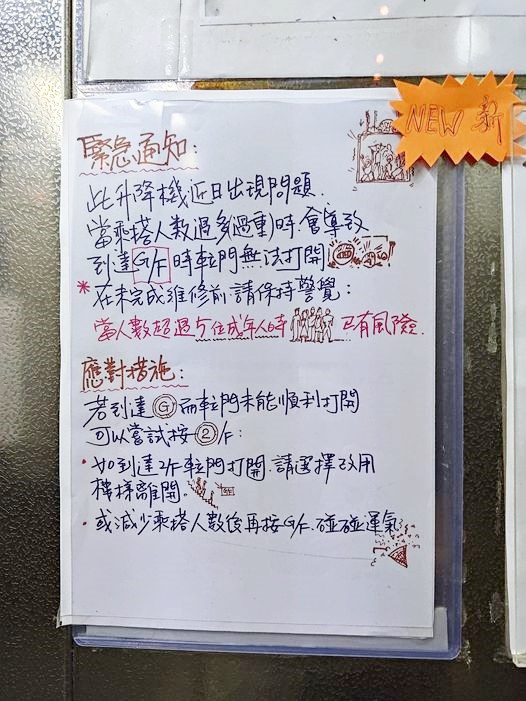 NEW 新
緊急通知:
此升降機近日出現問題.
當乘搭人數過多(過重)時.會導致
到達G/F時𨋢門無法打開
*在未完成維修前.請保持警覺:
當人數超過5位成年人時 已有風險.
應對措施:
若到達G而𨋢門未能順利打開
可以嘗試按2/F:
·如到達2/F𨋢門打開.請選擇改用
樓梯離開。
·或減少乘搭人數後再按G/F.碰碰運氣